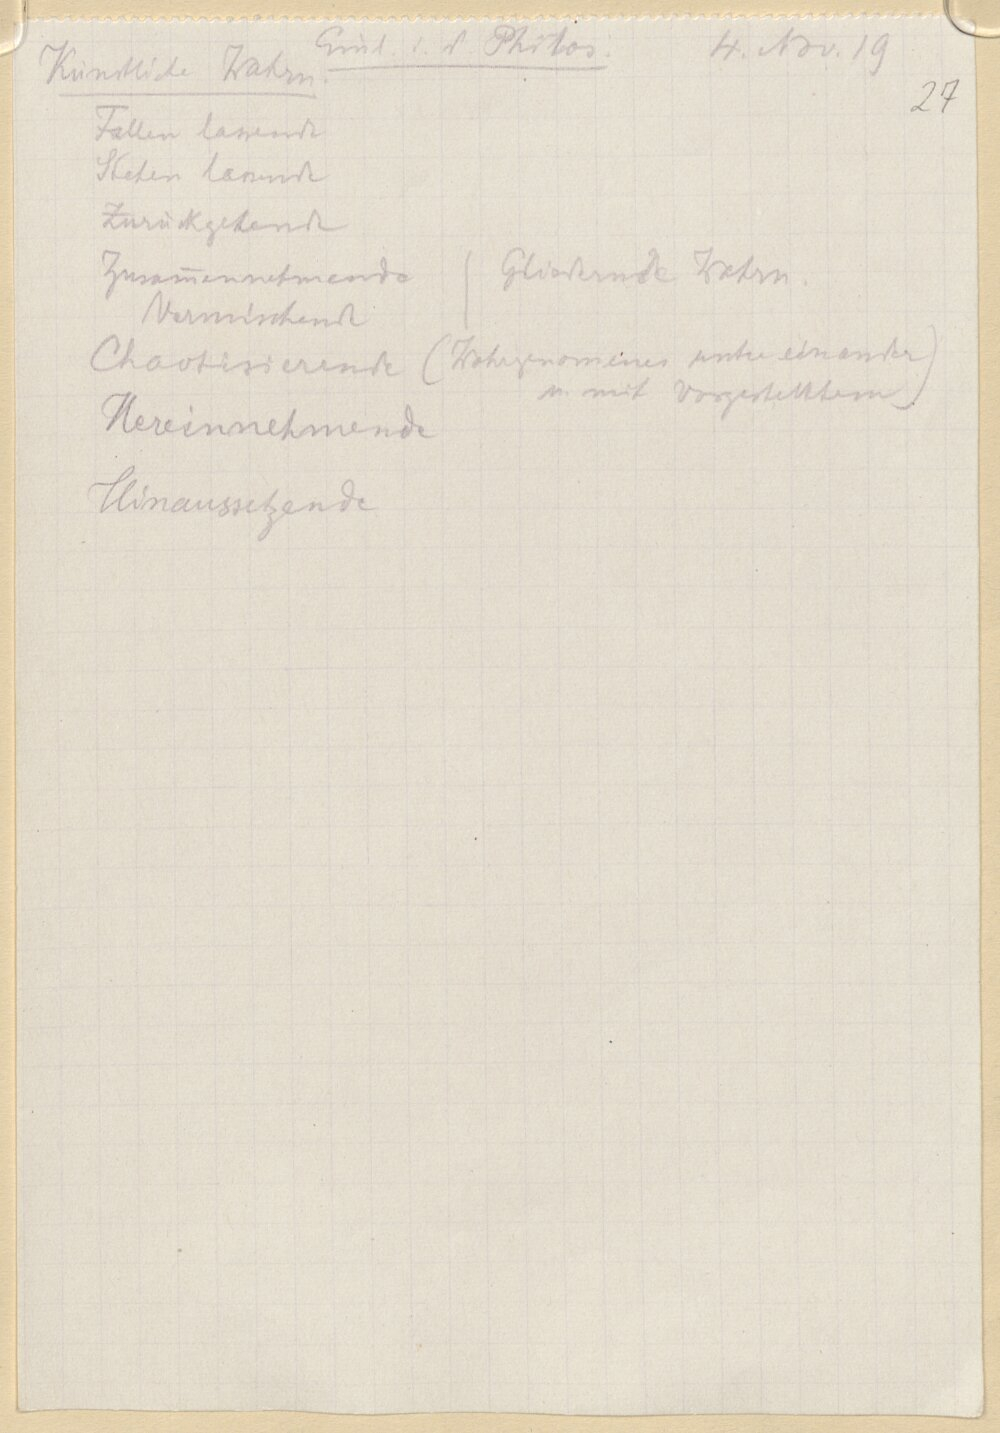 Einl. i. d Philos. 4. Nov. 19
Künstliche Wahrn.
27
Fallen lassende
Stehen lassende
Zurückgehende
Zusam̅ennehmende | Gliedernde Wahrn.
Vermischende
Chaotisierende (Wahrgenomenes unter einander
u. mit Vorgestelltem)
Hereinnehmende
Hinaussetzende